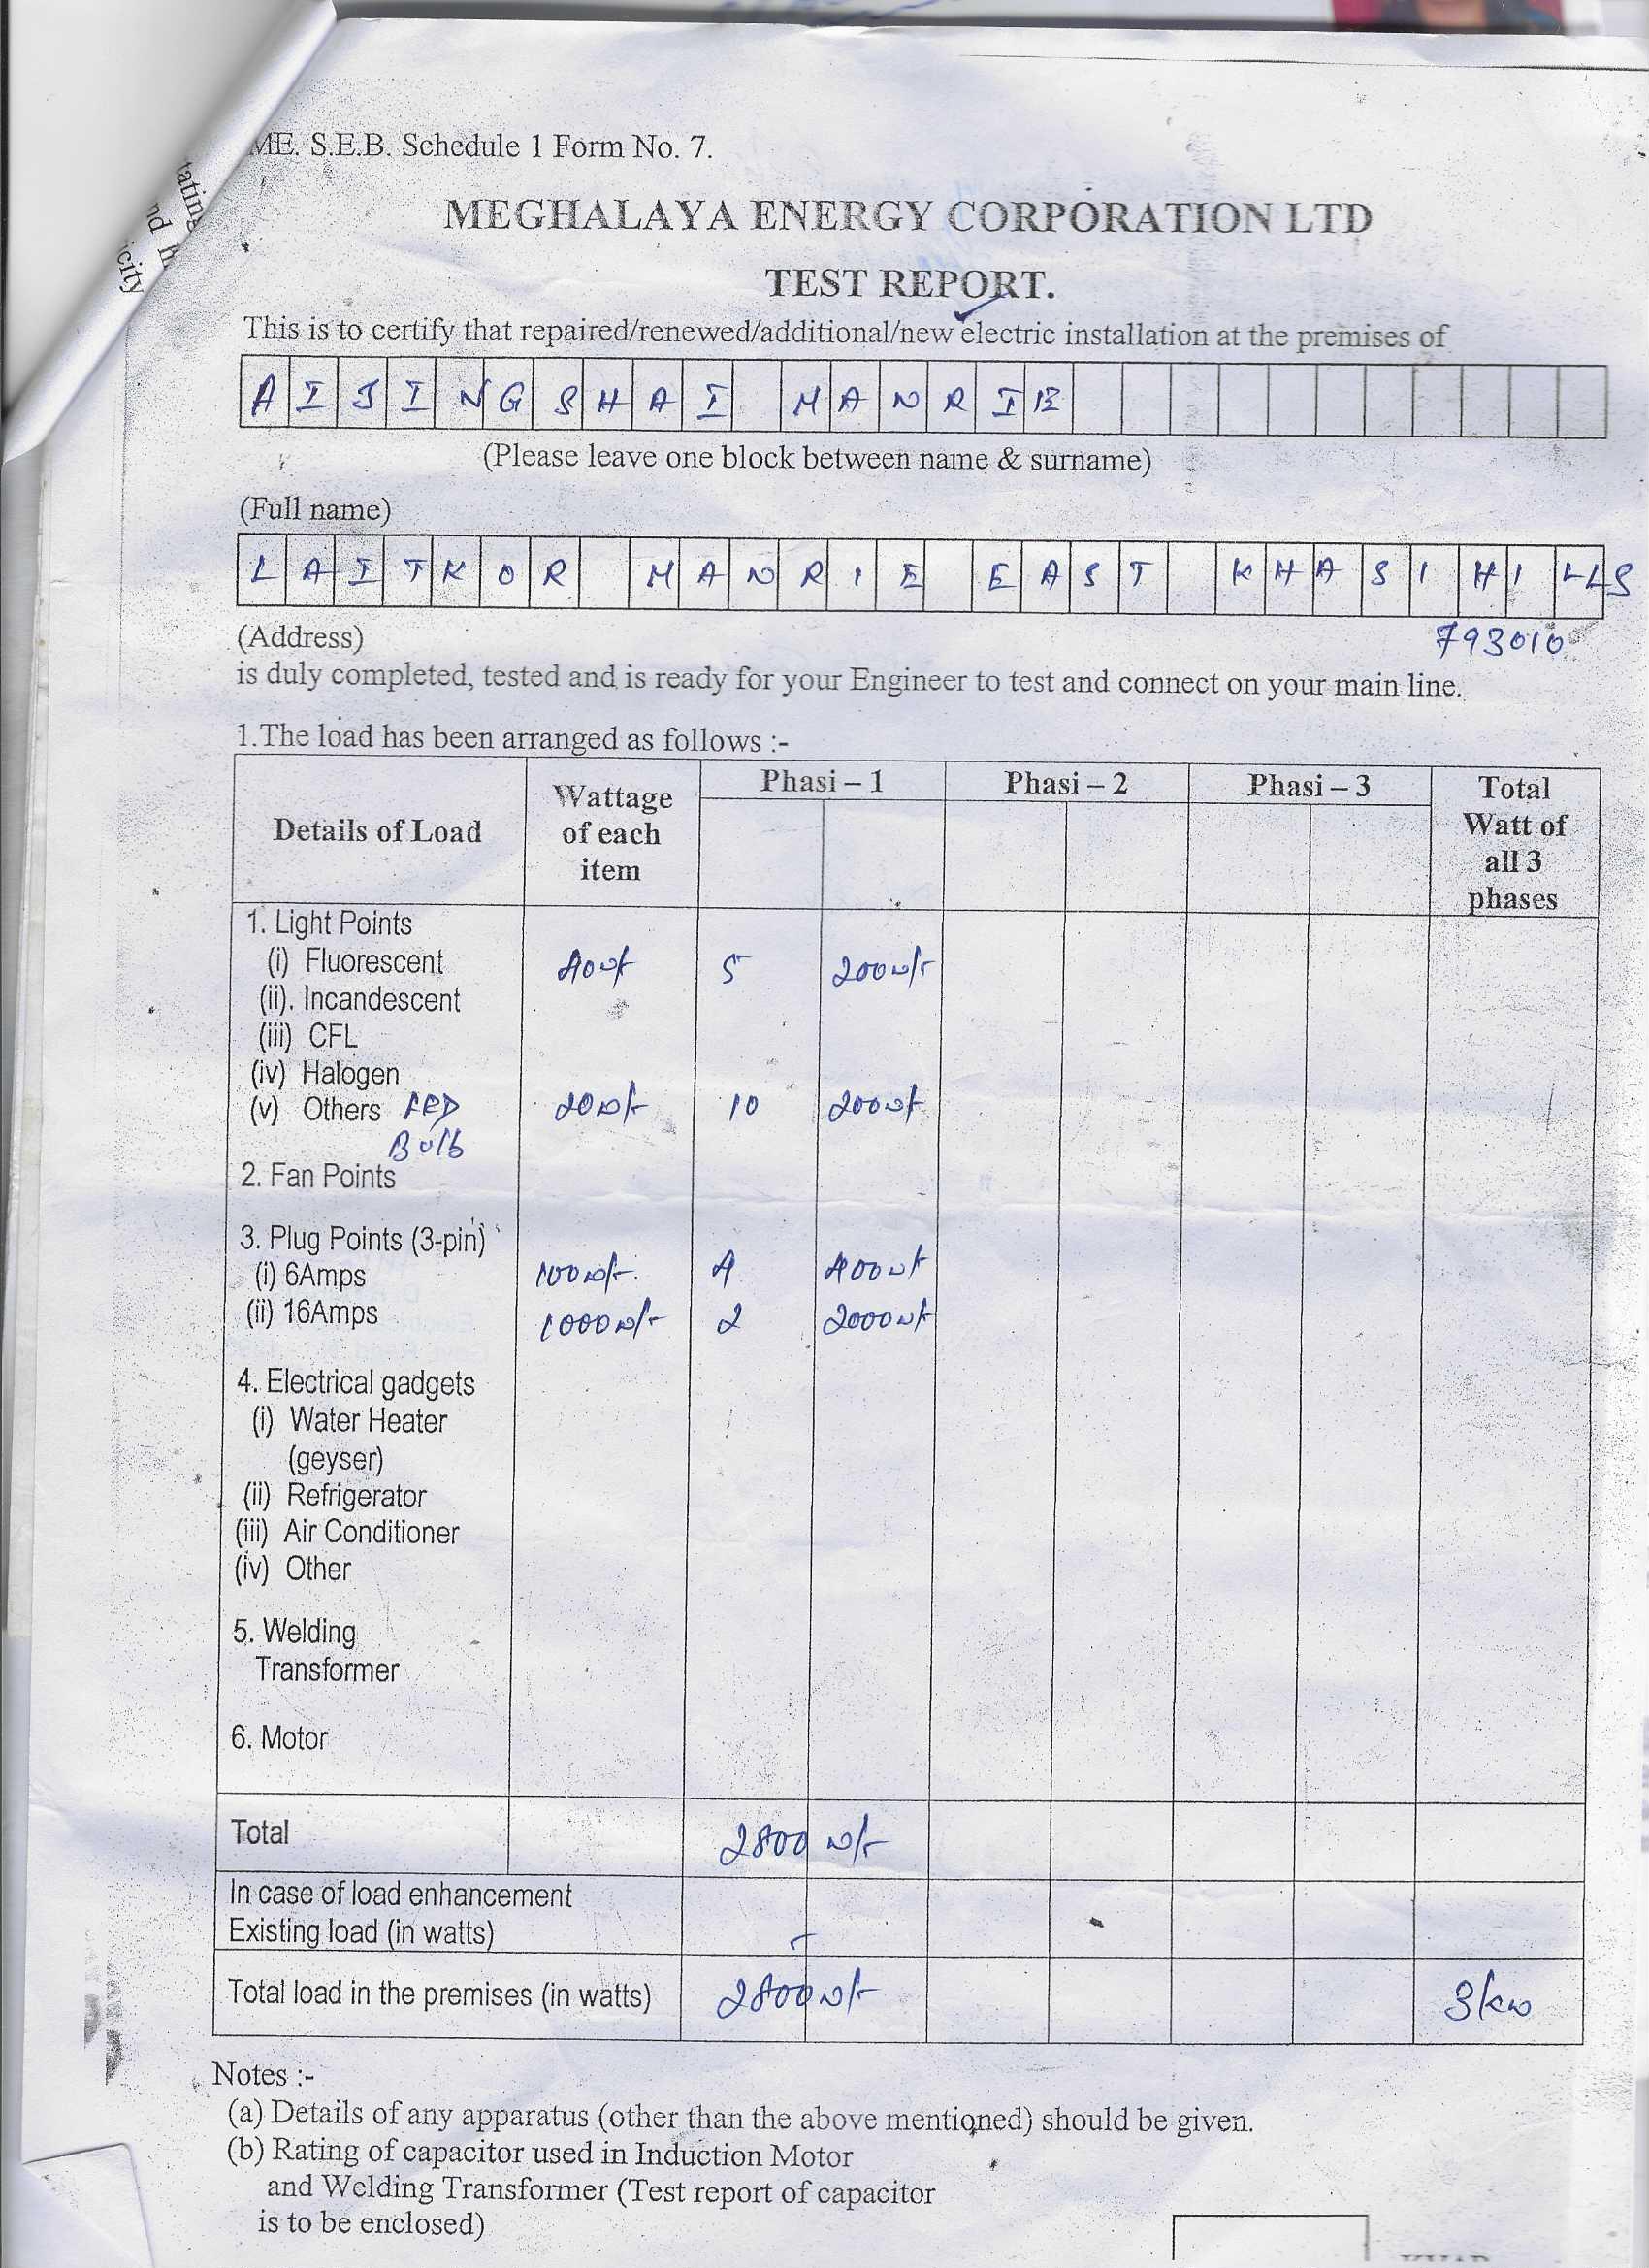 ME. S.E.B. Schedule 1 Form No. 7.
MEGHALAYA ENERGY CORPORATION LTD
TEST REPORT.
This is to certify that repaired/renewed/additional/new electric installation at the premises of
AIJINGSHAI MANRIE
(Please leave one block between name & surname)
(Full name)
LAITKOR MANRIE EAST KHASI HILLS
793010
(Address)
is duly completed, tested and is ready for your Engineer to test and connect on your main line.
1.The load has been arranged as follows :-
Details of Load Wattage of each item Phasi – 1 Phasi – 2 Phasi – 3 Total Watt of all 3 phases
1. Light Points
(i) Fluorescent 40w/- 5 200w/-
(ii). Incandescent
(iii) CFL
(iv) Halogen
(v) Others LED Bulb 20w/- 10 200w/-
2. Fan Points
3. Plug Points (3-pin)
(i) 6Amps 100w/- 4 400w/-
(ii) 16Amps 1000w/- 2 2000w/-
4. Electrical gadgets
(i) Water Heater
(geyser)
(ii) Refrigerator
(iii) Air Conditioner
(iv) Other
5. Welding
Transformer
6. Motor
Total 2800 w/-
In case of load enhancement
Existing load (in watts) -
Total load in the premises (in watts) 2800w/- 3kw
Notes :-
(a) Details of any apparatus (other than the above mentioned) should be given.
(b) Rating of capacitor used in Induction Motor
and Welding Transformer (Test report of capacitor
is to be enclosed)